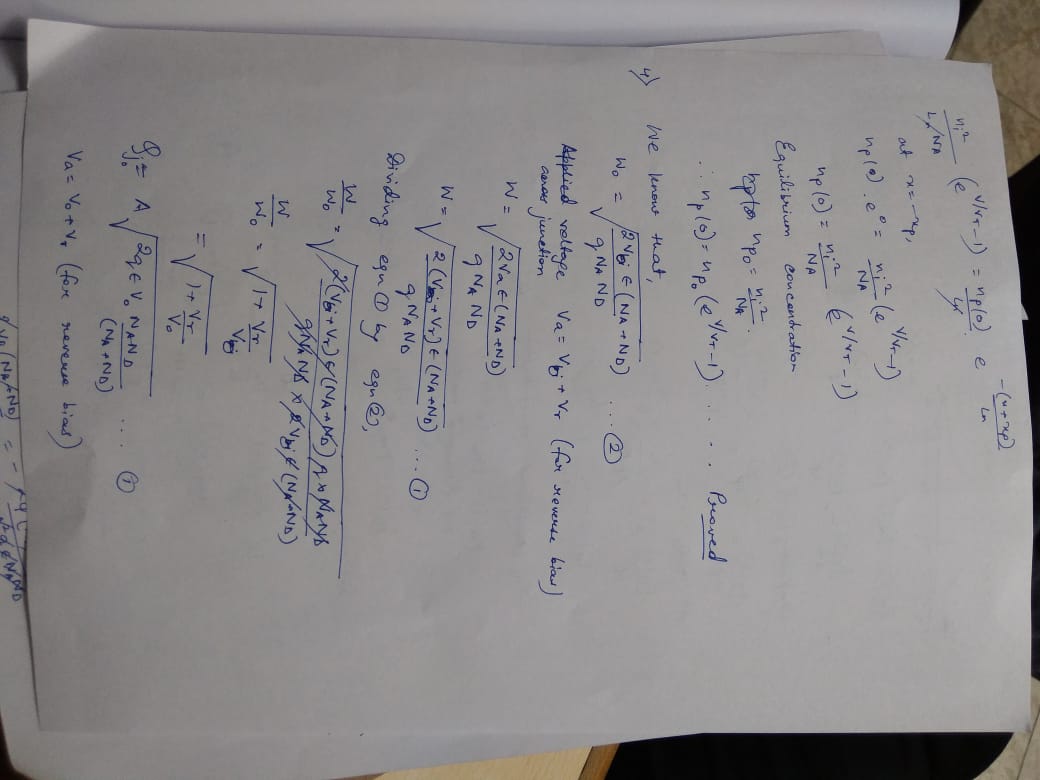 n_i² / (L_n N_A) (e^{V/V_T} - 1) = n_p(0) / L_n . e^{-(x+x_p)/L_n}
at x = -x_p,
n_p(0) . e⁰ = n_i² / N_A (e^{V/V_T} - 1)
n_p(0) = n_i² / N_A (e^{V/V_T} - 1)
Equilibrium concentration
n_p0 = n_i² / N_A .
∴ n_p(0) = n_p0 (e^{V/V_T} - 1) . . . . Proved
4) We know that,
W_0 = √(2V_bi ∈ (N_A + N_D) / q N_A N_D) .... ②
Applied voltage V_a = V_bi + V_r (for reverse bias)
across junction
W = √(2V_a ∈ (N_A + N_D) / q N_A N_D)
W = √(2 (V_bi + V_r) ∈ (N_A + N_D) / q N_A N_D) .... ①
Dividing eqn ① by eqn ②,
W / W_0 = √(2(V_bi + V_r) ∈ (N_A + N_D) q × N_A N_D / q N_A N_D × 2 V_bi ∈ (N_A + N_D))
W / W_0 = √(1 + V_r / V_bi)
= √(1 + V_r / V_0)
Q_j0 = A √(2q ∈ V_0 N_A N_D / (N_A + N_D)) .... ①
V_a = V_0 + V_r (for reverse bias)